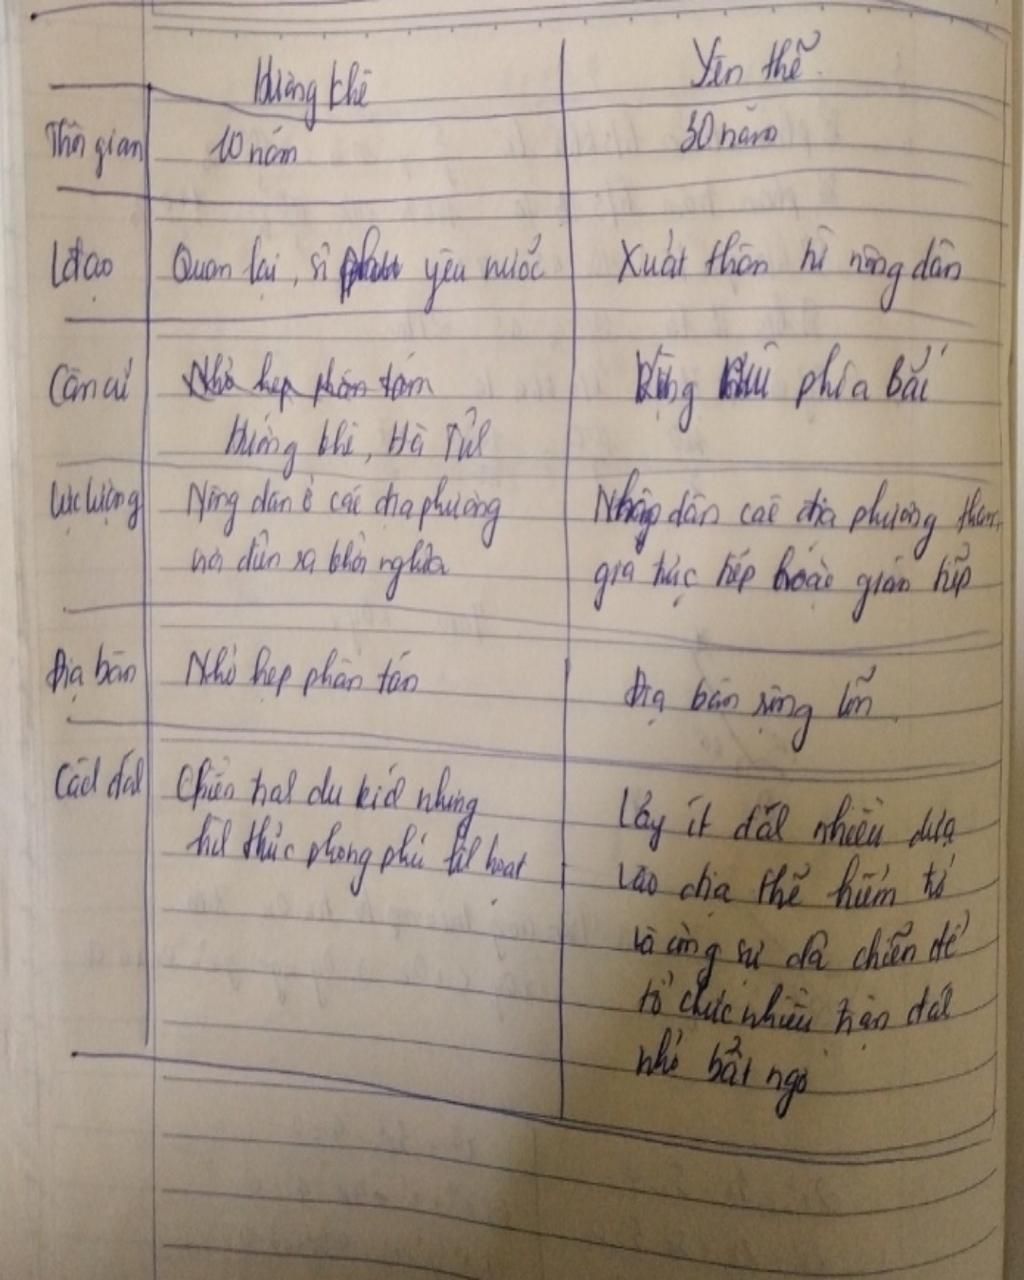 Hương Khê Yên Thế
Thời gian 10 năm 30 năm
L đạo Quan lại, sĩ phu yêu nước Xuất thân từ nông dân
Căn cứ Nhỏ hẹp phân tán phía Bắc
Hương Khê, Hà Tĩnh
Lực lượng Nông dân ở các địa phương Nhân dân các địa phương tham
nơi diễn ra khởi nghĩa gia trực tiếp hoặc gián tiếp
Địa bàn Nhỏ hẹp phân tán Địa bàn rộng lớn
Cách đánh Chiến tranh du kích nhưng Lấy ít đánh nhiều dựa
hình thức phong phú linh hoạt vào địa thế hiểm trở
và công sự dã chiến để
tổ chức nhiều trận đánh
nhỏ bất ngờ